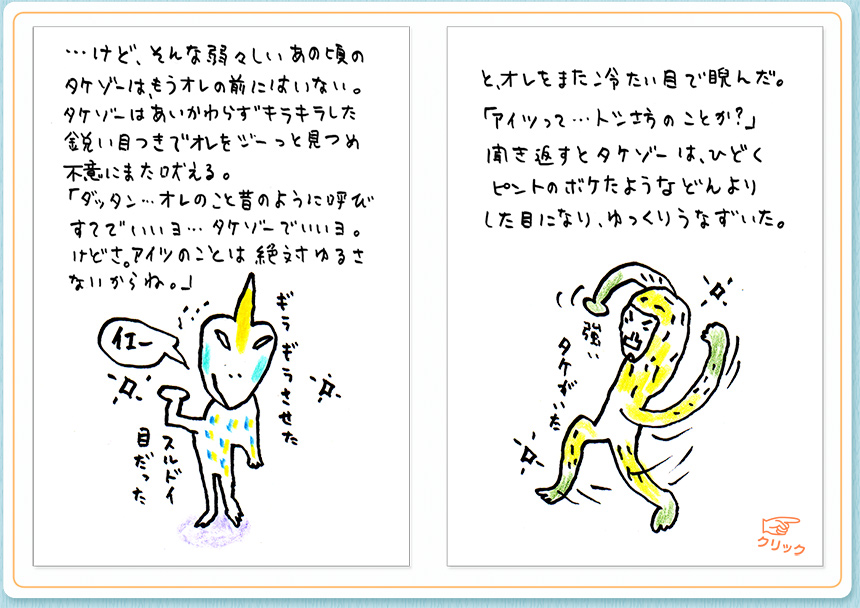 …けど、そんな弱々しいあの頃の
タケゾーは、もうオレの前にはいない。
タケゾーはあいかわらずキラキラした
鋭い目つきでオレをジーっと見つめ
不意にまた吠える。
「ダッタン…オレのこと昔のように呼び
すてでいいヨ…タケゾーでいいヨ。
けどさ。アイツのことは絶対ゆるさ
ないからね。」
ギラギラさせた
スルドイ
目だった
と、オレをまた冷たい目で睨んだ。
「アイツって…トン吉のことか?」
聞き返すとタケゾーは、ひどく
ピントのボケたようなどんより
した目になり、ゆっくりうなずいた。
強い
タケがいた
クリック